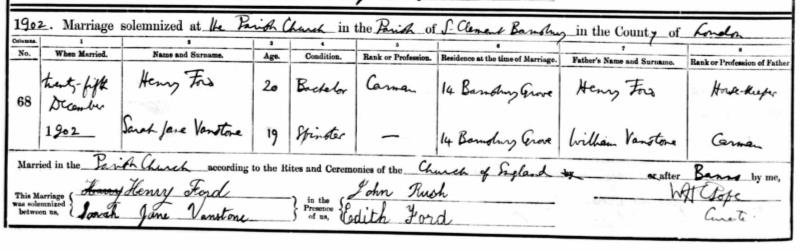 1902. Marriage solemnized at the Parish Church in the Parish of St Clement Barnsbury in the County of London
Columns. 1 2 3 4 5 6 7 8
No. When Married. Name and Surname. Age. Condition. Rank or Profession. Residence at the time of Marriage. Father's Name and Surname. Rank or Profession of Father
68 twenty-fifth December 1902 Henry Ford 20 Bachelor Carman 14 Barnsbury Grove Henry Ford Horse-keeper
Sarah Jane Vanstone 19 Spinster — 14 Barnsbury Grove William Vanstone Carman
Married in the Parish Church according to the Rites and Ceremonies of the Church of England by or after Banns by me,
This Marriage was solemnized between us, Henry Ford in the Presence of us, John Rush
Sarah Jane Vanstone Edith Ford
Curate